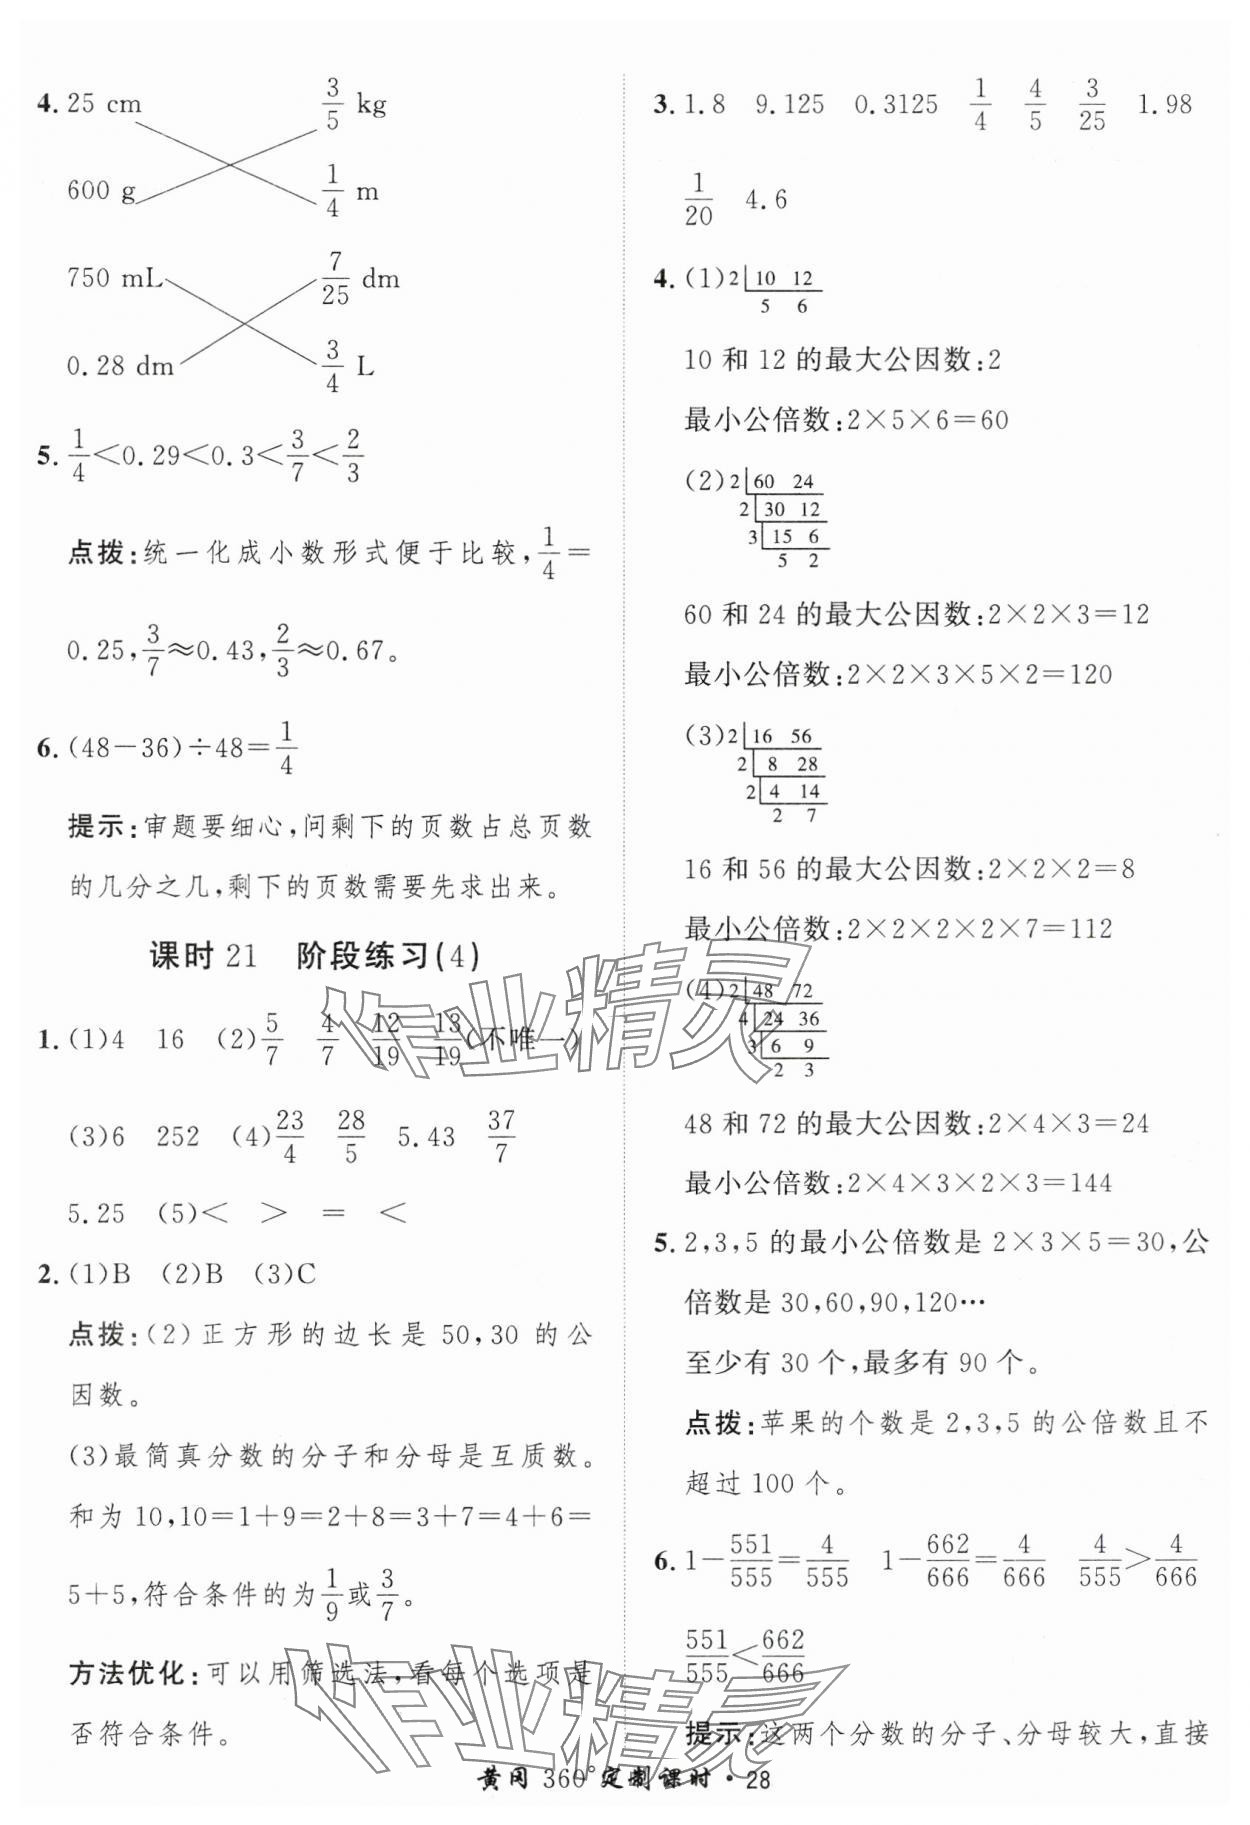 4. 25 cm 3/5 kg
600 g 1/4 m
750 mL 7/25 dm
0.28 dm 3/4 L
5. 1/4<0.29<0.3<3/7<2/3
点拨:统一化成小数形式便于比较,1/4=
0.25,3/7≈0.43,2/3≈0.67。
6. (48-36)÷48=1/4
提示:审题要细心,问剩下的页数占总页数
的几分之几,剩下的页数需要先求出来。
课时 21 阶段练习(4)
1. (1)4 16 (2)5/7 4/7 12/19 13/19(不唯一)
(3)6 252 (4)23/4 28/5 5.43 37/7
5.25 (5)< > = <
2. (1)B (2)B (3)C
点拨:(2)正方形的边长是 50,30 的公
因数。
(3)最简真分数的分子和分母是互质数。
和为 10,10=1+9=2+8=3+7=4+6=
5+5,符合条件的为1/9或3/7。
方法优化:可以用筛选法,看每个选项是
否符合条件。
3. 1.8 9.125 0.3125 1/4 4/5 3/25 1.98
1/20 4.6
4. (1) 2 10 12
5 6
10 和 12 的最大公因数:2
最小公倍数:2×5×6=60
(2) 2 60 24
2 30 12
3 15 6
5 2
60 和 24 的最大公因数:2×2×3=12
最小公倍数:2×2×3×5×2=120
(3) 2 16 56
2 8 28
2 4 14
2 7
16 和 56 的最大公因数:2×2×2=8
最小公倍数:2×2×2×2×7=112
(4) 2 48 72
4 24 36
3 6 9
2 3
48 和 72 的最大公因数:2×4×3=24
最小公倍数:2×4×3×2×3=144
5. 2,3,5 的最小公倍数是 2×3×5=30,公
倍数是 30,60,90,120…
至少有 30 个,最多有 90 个。
点拨:苹果的个数是 2,3,5 的公倍数且不
超过 100 个。
6. 1-551/555=4/555 1-662/666=4/666 4/555>4/666
551/555<662/666
提示:这两个分数的分子、分母较大,直接
黄冈 360°定制课时·28
作业精灵
作业精灵